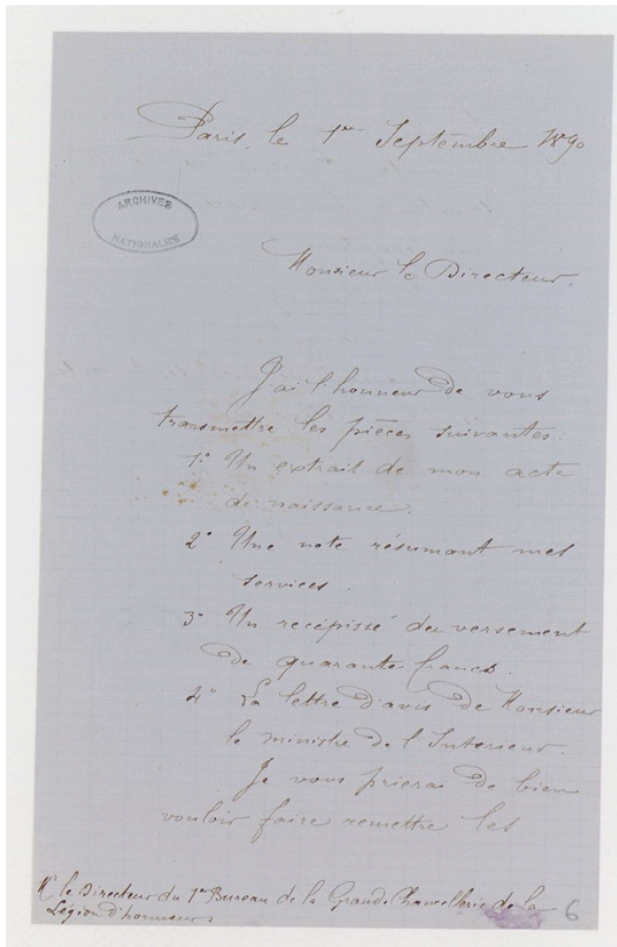 Paris, le 1er Septembre 1890
ARCHIVES
NATIONALES
Monsieur le Directeur.
J'ai l'honneur de vous
transmettre les pièces suivantes:
1° Un extrait de mon acte
de naissance.
2° Une note résumant mes
services.
3° Un recépissé du versement
de quarante francs.
4° La lettre d'avis de Monsieur
le ministre de l'Interieur.
Je vous prierai de bien
vouloir faire remettre les
Mr le Directeur du 1er Bureau de la Grande Chancellerie de la
Légion d'honneur.
6